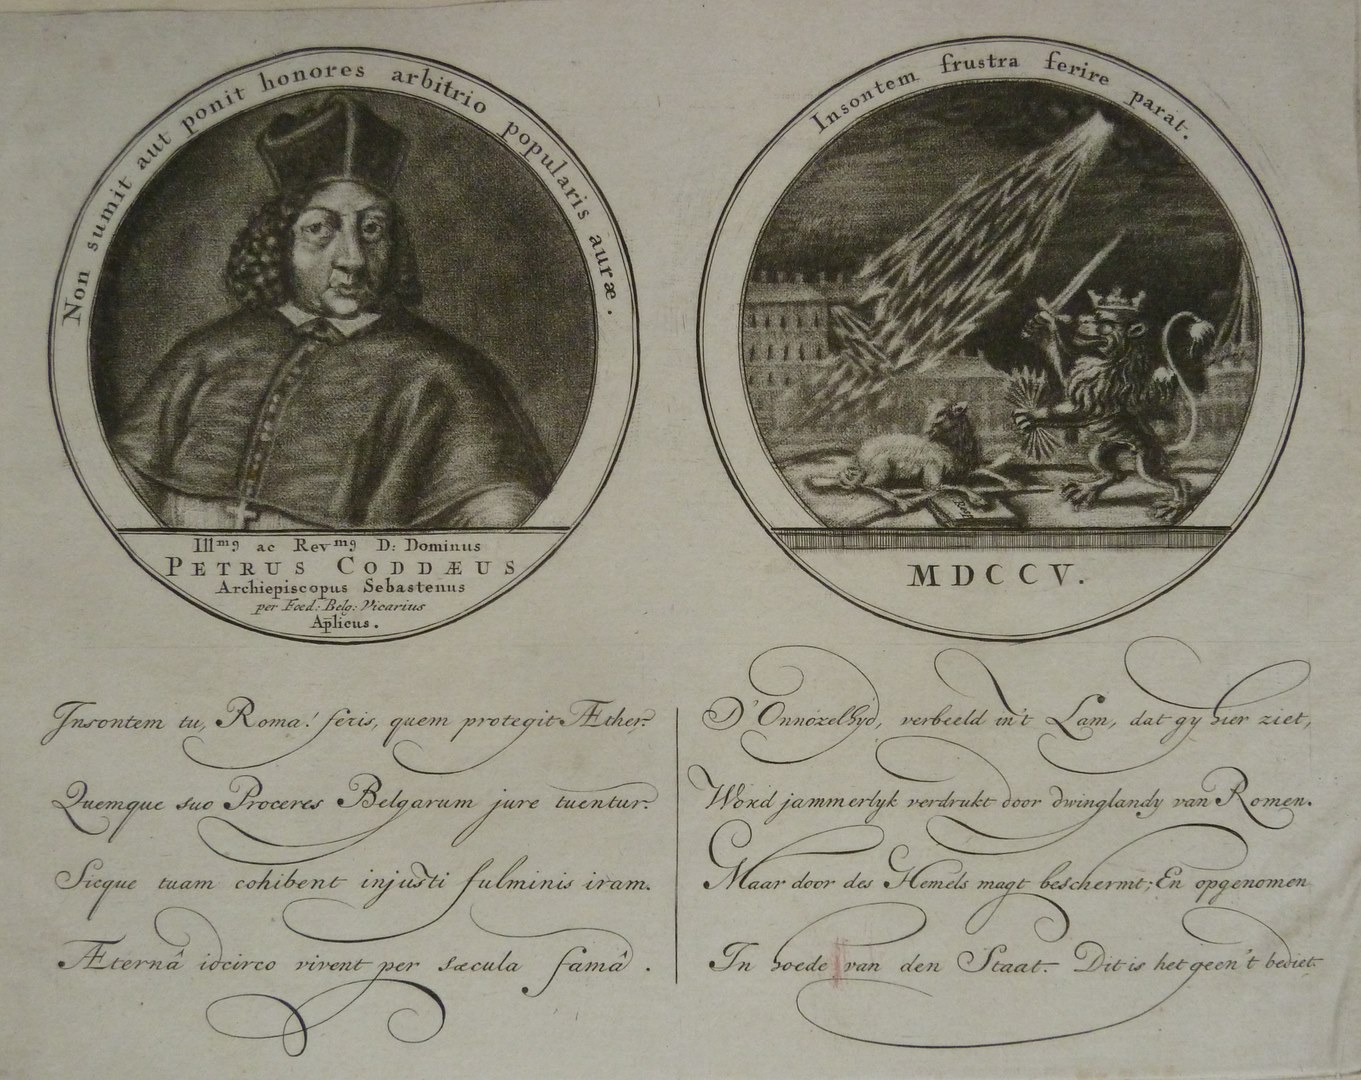 Non sumit aut ponit honores arbitrio popularis auræ.
Illmꝰ ac Revmꝰ D: Dominus
PETRUS CODDÆUS
Archiepiscopus Sebastenus
per Foed: Belg: Vicarius
Ap̅licus.
Insontem frustra ferire parat.
MDCCV.
Insontem tu, Roma! feris, quem protegit Æther,
Quemque suo Proceres Belgarum jure tuentur.
Sicque tuam cohibent injusti fulminis iram.
Æternâ idcirco vivent per sæcula famâ.
D'Onnozelhyd, verbeeld in't Lam, dat gy hier ziet,
Word jammerlyk verdrukt door dwinglandy van Romen.
Maar door des Hemels magt beschermt; En opgenomen
In hoede van den Staat. Dit is het geen 't bediet.